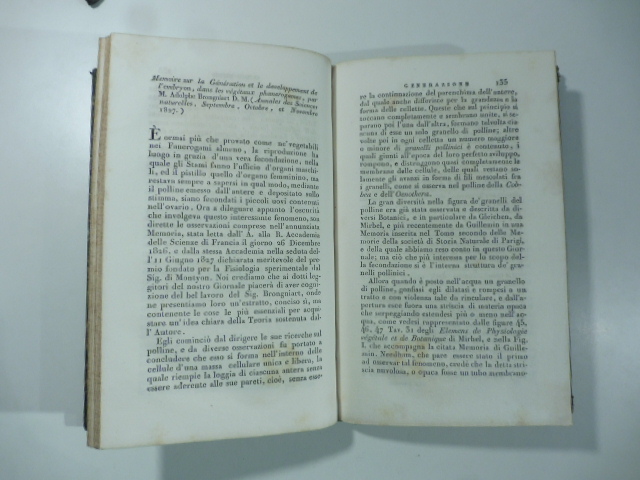 Memoire sur la Génération et le developpement de
l'embryon, dans les végétaux phanerogames, par
M. Adolphe Brongniart D. M. (Annales des Sciences
naturelles, Septembre, Octobre, et Novembre
1827.)
È ormai più che provato come ne' vegetabili
noi Fanerogami almeno, la riproduzione ha
luogo in grazia d'una vera fecondazione, nella
quale gli Stami fanno l'ufficio d'organi maschi-
li, ed il pistillo quello d'organo femminino, ma
restava sempre a sapersi in qual modo, mediante
il polline emesso dall'antere e depositato nello
stimma, siano fecondati i piccoli uovi contenuti
nell'ovario. Ora a dileguare appunto l'oscurità
che involgeva questo interessante fenomeno, son
dirette le osservazioni comprese nell'annunziata
Memoria, stata letta dall'A. alla R. Accademia
delle Scienze di Francia il giorno 26 Dicembre
1826, e dalla stessa Accademia nella seduta del-
l'11 Giugno 1827 dichiarata meritevole del pre-
mio fondato per la Fisiologia sperimentale dal
Sig. di Montyon. Noi crediamo che ai dotti leg-
gitori del nostro Giornale piacerà di aver cogni-
zione del bel lavoro del Sig. Brongniart, onde
ne presentiamo loro un'estratto, conciso sì, ma
contenente le cose le più essenziali per acqui-
stare un'idea chiara della Teoria sostenuta dal-
l'Autore.
Egli cominciò dal dirigere le sue ricerche sul
polline, e da diverse osservazioni fu portato a
concludere che esso si forma nell'interno delle
cellule d'una massa cellulare unica e libera, la
quale riempie la loggia di ciascuna antera senza
essere aderente alle sue pareti, cioè, senza esse-
GENERAZIONE 135
re la continuazione del parenchima dell'antere,
dal quale anche differisce per la grandezza e la
forma delle cellette. Queste che sul principio si
toccano completamente e sembrano unite, si se-
parano poi l'una dall'altra, formano talvolta cia-
scuna di esse un solo granello di polline; altre
volte poi in ogni celletta un numero maggiore
o minore di granelli pollinici è contenuto, i
quali giunti all'epoca del loro perfetto sviluppo,
rompono, e distruggono quasi completamente le
membrane dalle cellule, delle quali restano so-
lamente gli avanzi in forma di fili mescolati fra
i granelli, come si osserva nel polline della Co-
bea e dell'Oenothera.
La gran diversità nella figura de' granelli del
polline era già stata osservata e descritta da di-
versi Botanici, e in particolare da Gleichen, da
Mirbel, e più recentemente da Guillemin in una
Memoria inserita nel Tomo secondo delle Me-
morie della società di Storia Naturale di Parigi,
della quale abbiamo reso conto in questo Gior-
nale; ma ciò che più interessa per lo scopo del-
la fecondazione si è l'interna struttura de' gra-
nelli pollinici.
Allora quando è posto nell'acqua un granello
di polline, gonfiasi egli dilatasi e rompesi a un
tratto non violenza tale da circolare, e dall'a-
pertura esce fuora una striscia di materia opaca
che serpeggiando estendesi più o meno nell'ac-
qua, come vedesi rappresentato dalle figure 45,
46, 47 Tav. I2 degli Elemens de Physiologie
végétale et de Botanique di Mirbel, e nella Fig.
I. che accompagna la citata Memoria di Guille-
min. Needham, che pare essere stato il primo
ad osservar tal fenomeno, credè che la detta stri-
scia nuvolosa, o opaca fosse un tubo membrano-